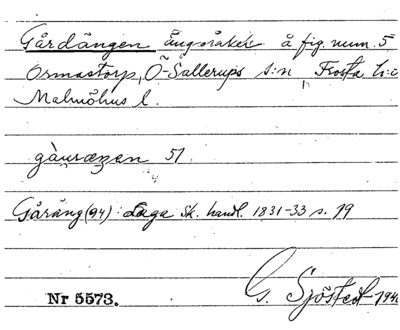 Gårdängen ängsåker å fig. num. 5
Ormastorp, Ö-Sallerups s:n, Frosta h:d
Malmöhus l.
gåuræŋen 51
Gåräng (94): Laga Sk. handl. 1831-33 s. 19
G. Sjöstedt 1940
Nr 5573.